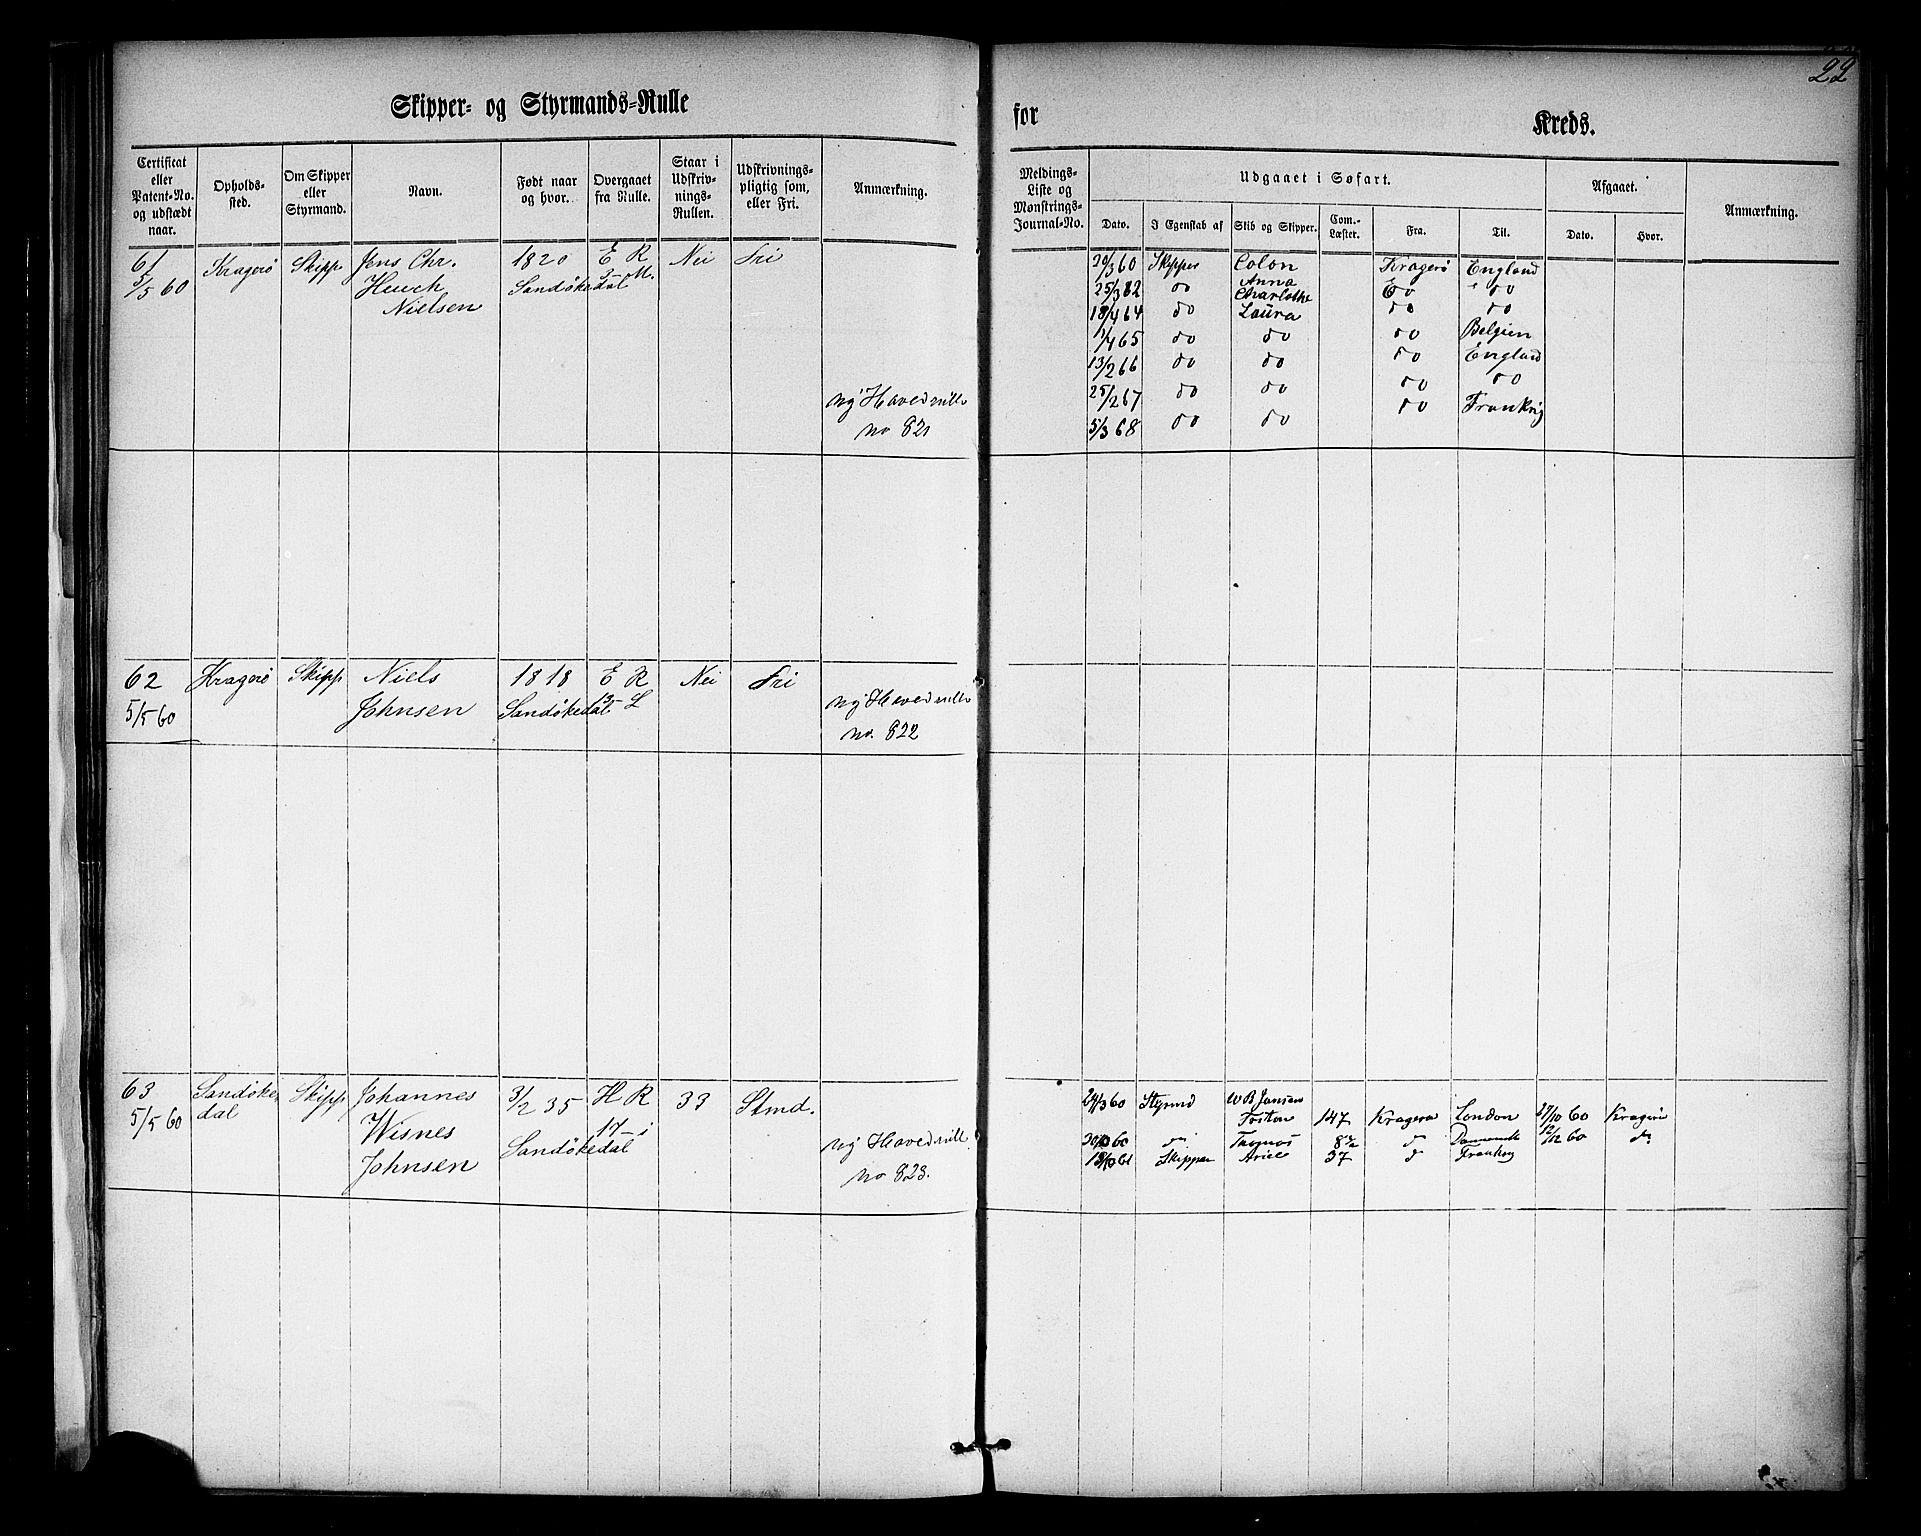 22
Skipper- og Styrmands-Rulle
for
Kreds.
Certificat eller Patent-No. og udstædt naar.
Opholds-sted.
Om Skipper eller Styrmand.
Navn.
Født naar og hvor.
Overgaaet fra Rulle.
Staar i Udskriv-nings-Rullen.
Udskrivnings-pligtig som, eller Fri.
Anmærkning.
Meldings-Liste og Mønstrings-Journal-No.
Udgaaet i Søfart.
Dato.
I Egenskab af
Skib og Skipper.
Com.-Læster.
Fra.
Til.
Afgaaet.
Dato.
Hvor.
Anmærkning.
61 Kragerø Skipp Jens Chr. 1820 E R Nei Fri
5/5 60 Heuch Sandøkedal 3-M.
Nielsen
ny Hovedrulle
no 821
20/3 60 Skipper Colon Kragerø England
25/3 82 do Anna Charlothe do do
18/4 64 do Laura do do
1/4 65 do do do Belgien
13/2 66 do do do England
25/2 67 do do do do
5/3 68 do do do Frankrig
62 Kragerø Skipp Niels 1818 E R Nei Fri
5/5 60 Johnsen Sandøkedal 13- L
ny Hovedrulle
no. 822
63 Sandøke Skipp Johannes 3/2 35 H R 33 Stmd.
5/5 60 dal Wisnes Sandøkedal 17-i
Johnsen
ny Hovedrulle
no 823.
24/3 60 Styrmd W B Jansen
147 Kragerø London 27/10 60 Kragerø
60 do d 12/12 60 do
61 Skipper Ariel 37 d